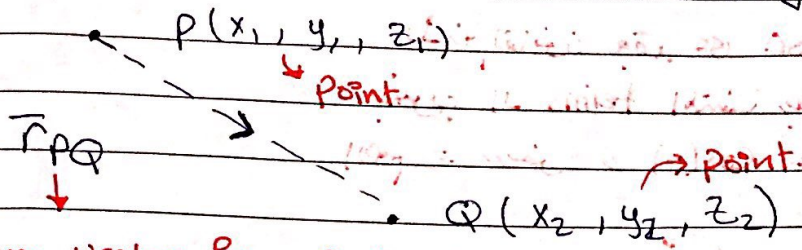 P(x₁, y₁, z₁)
Point
r̅PQ
Point.
Q(x₂, y₂, z₂)